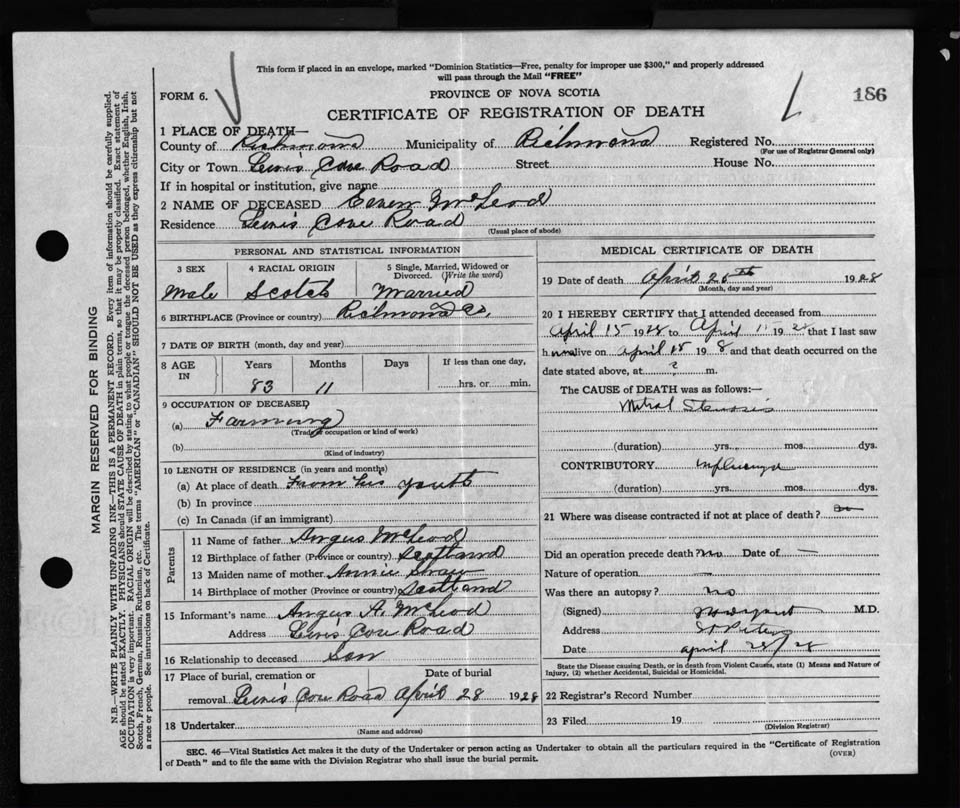 This form if placed in an envelope, marked "Dominion Statistics—Free, penalty for improper use $300," and properly addressed
will pass through the Mail "FREE"
FORM 6.
PROVINCE OF NOVA SCOTIA
186
CERTIFICATE OF REGISTRATION OF DEATH
1 PLACE OF DEATH—
County of Richmond Municipality of Richmond Registered No.
(For use of Registrar General only)
City or Town Lewis Cove Road Street House No.
If in hospital or institution, give name
2 NAME OF DECEASED McLeod
Residence Lewis Cove Road
(Usual place of abode)
PERSONAL AND STATISTICAL INFORMATION
3 SEX 4 RACIAL ORIGIN 5 Single, Married, Widowed or Divorced. (Write the word)
Male Scotch Married
6 BIRTHPLACE (Province or country) Richmond Co,
7 DATE OF BIRTH (month, day and year)
8 AGE IN Years Months Days If less than one day,
83 11 hrs. or min.
9 OCCUPATION OF DECEASED
(a) Farming
(Trade, occupation or kind of work)
(b)
(Kind of industry)
10 LENGTH OF RESIDENCE (in years and months)
(a) At place of death From his youth
(b) In province
(c) In Canada (if an immigrant)
Parents
11 Name of father Angus McLeod
12 Birthplace of father (Province or country) Scotland
13 Maiden name of mother Annie Shaw
14 Birthplace of mother (Province or country) Scotland
15 Informant's name Angus A. McLeod
Address Lewis Cove Road
16 Relationship to deceased Son
17 Place of burial, cremation or Date of burial
removal Lewis Cove Road April 28 1928
18 Undertaker
(Name and address)
MEDICAL CERTIFICATE OF DEATH
19 Date of death April 26th 1928
(Month, day and year)
20 I HEREBY CERTIFY that I attended deceased from
April 15 1928 to April 15 1928 that I last saw
h alive on April 15 19 8 and that death occurred on the
date stated above, at ? m.
The CAUSE of DEATH was as follows:—
Mitral Stenosis
(duration) yrs. mos. dys.
CONTRIBUTORY Influenza
(duration) yrs. mos. dys.
21 Where was disease contracted if not at place of death?
Did an operation precede death? no Date of —
Nature of operation —
Was there an autopsy? no
(Signed) M.D.
Address St Peters
Date April 28/28
State the Disease causing Death, or in death from Violent Causes, state (1) Means and Nature of
Injury, (2) whether Accidental, Suicidal or Homicidal.
22 Registrar's Record Number
23 Filed 19
(Division Registrar)
SEC. 46—Vital Statistics Act makes it the duty of the Undertaker or person acting as Undertaker to obtain all the particulars required in the "Certificate of Registration
of Death" and to file the same with the Division Registrar who shall issue the burial permit.
(OVER)
MARGIN RESERVED FOR BINDING
N.B.—WRITE PLAINLY WITH UNFADING INK—THIS IS A PERMANENT RECORD. Every item of information should be carefully supplied.
AGE should be stated EXACTLY. PHYSICIANS should STATE CAUSE OF DEATH in plain terms, so that it may be properly classified. Exact statement of
OCCUPATION is very important. RACIAL ORIGIN will be described by stating to what people or tongue the deceased person belonged, whether English, Irish,
Scotch, French, German, Russian, Ruthenian, etc. The terms "AMERICAN" or "CANADIAN" SHOULD NOT BE USED as they express citizenship but not
a race or people. See instructions on back of Certificate.